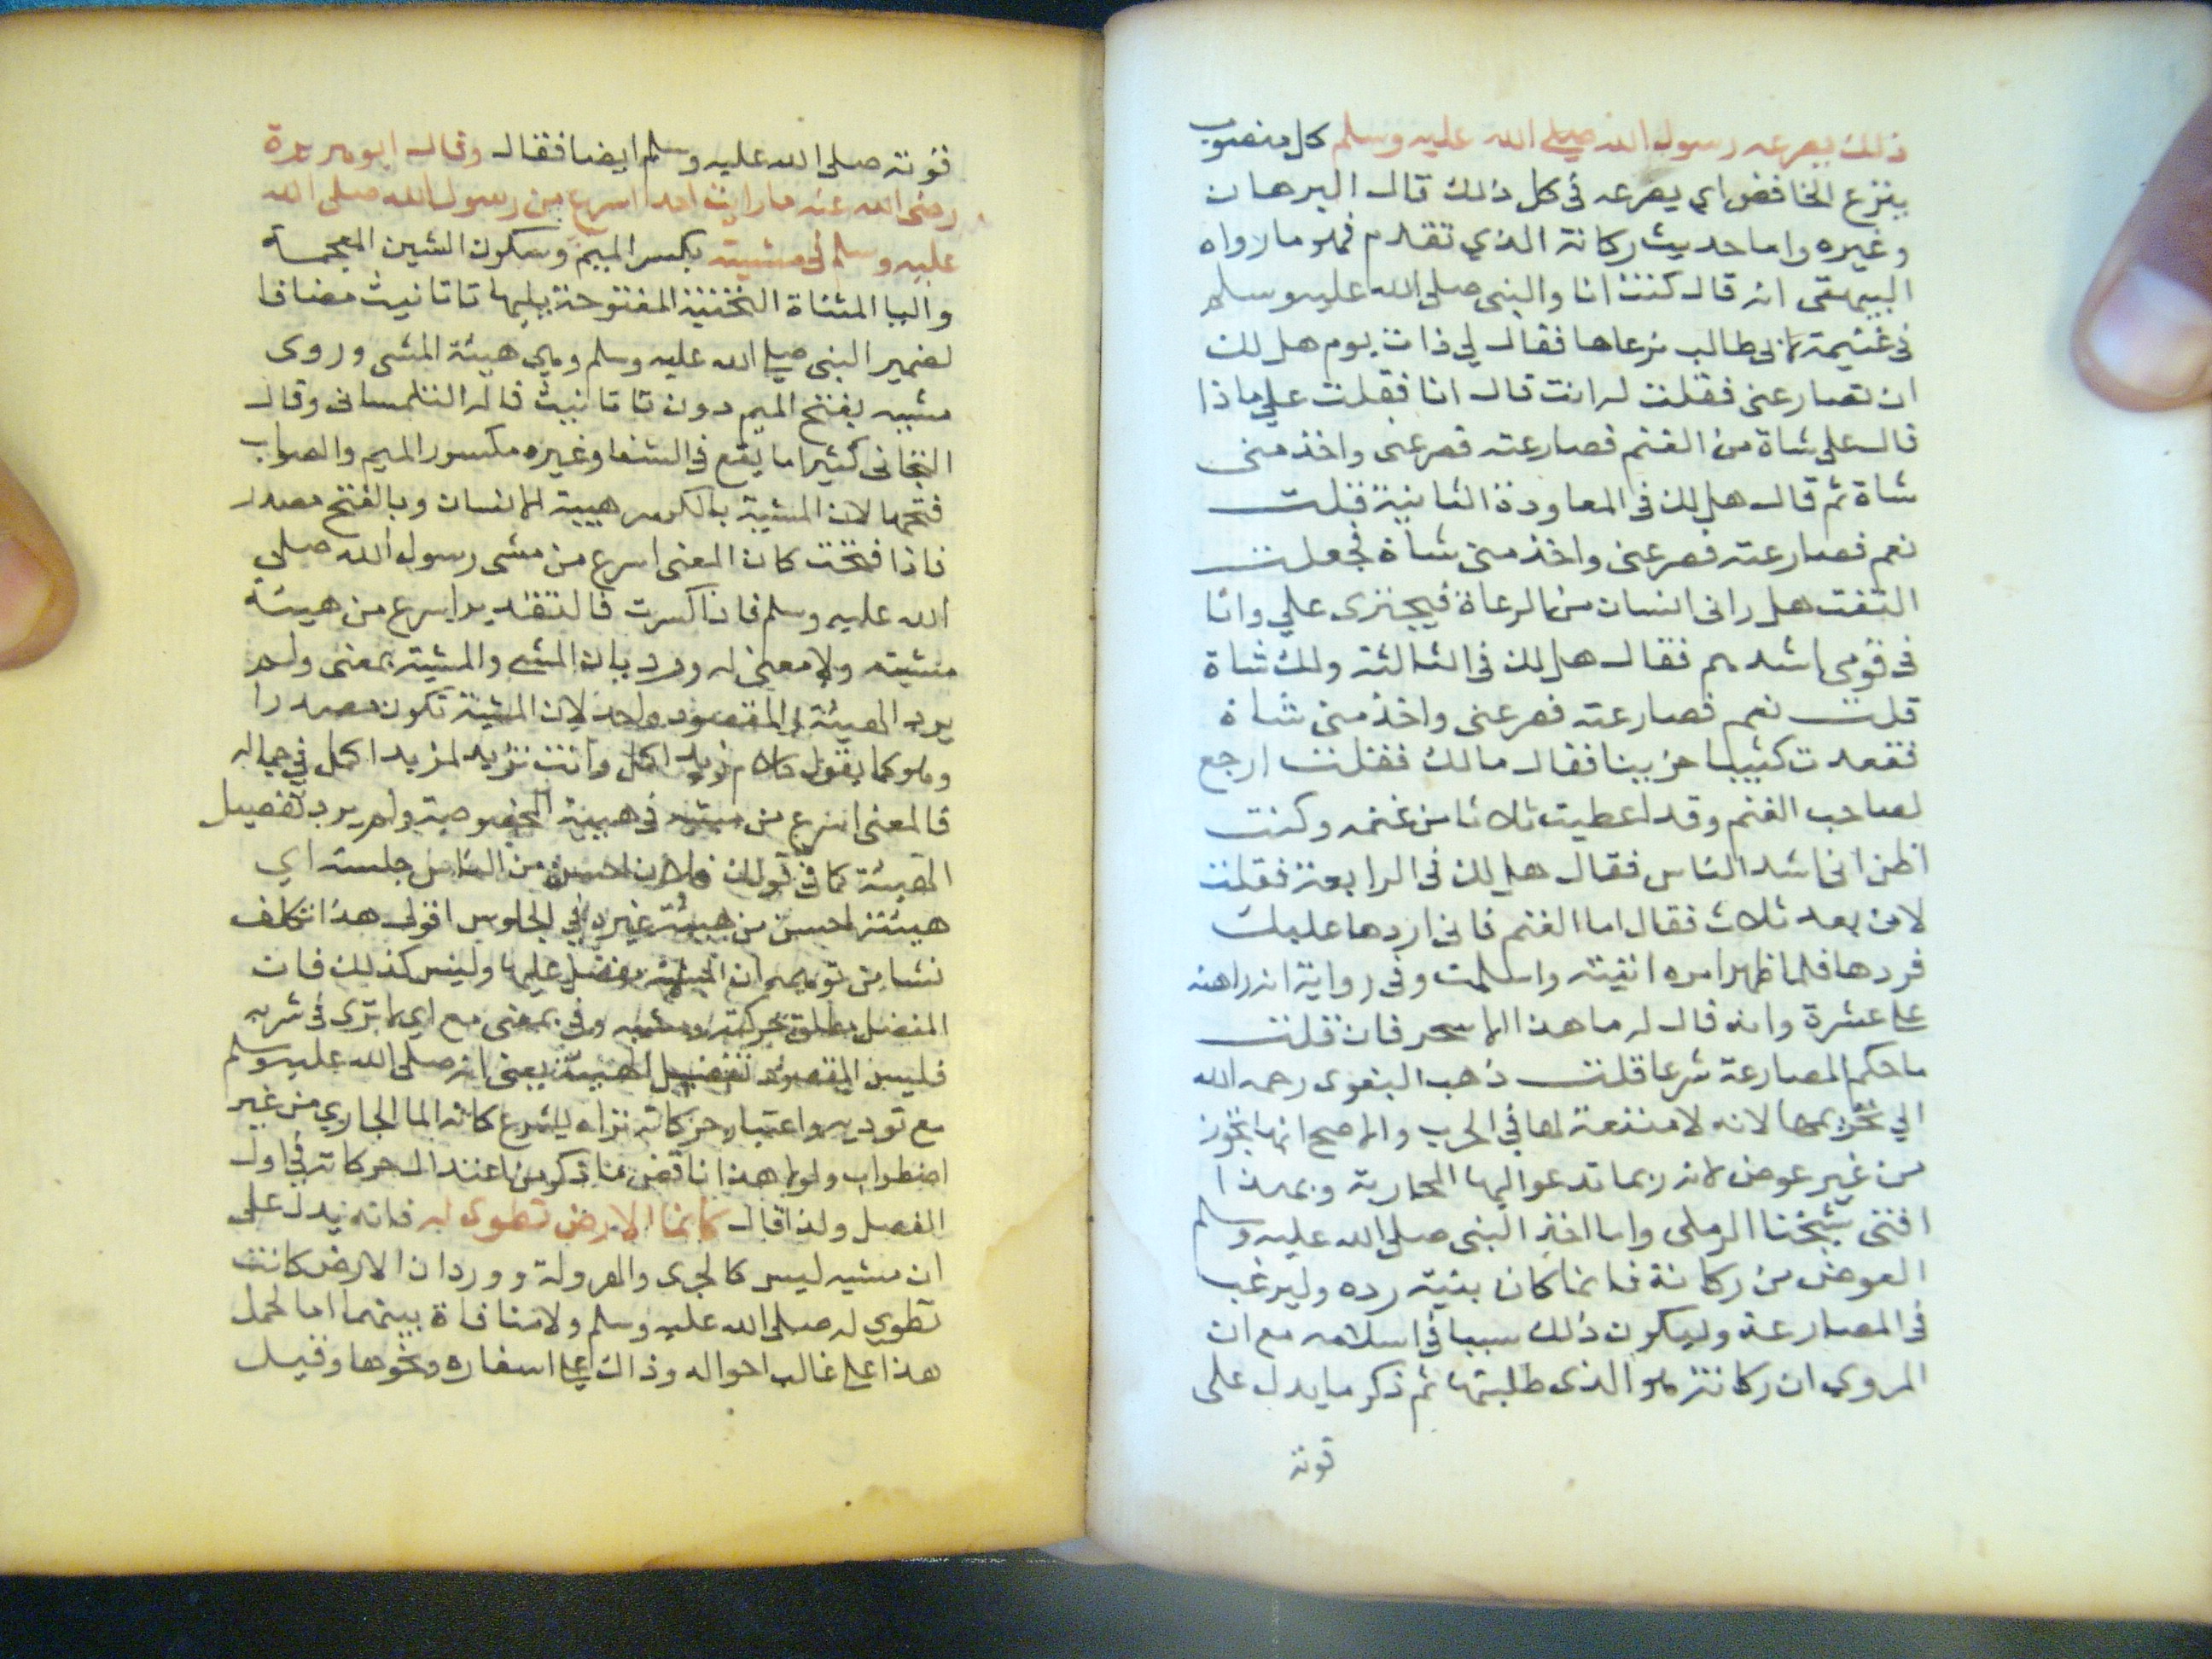 ذلك يصرعه رسول الله صلى الله عليه وسلم كل منصوب
بنزع الخافض اي يصرعه في كل ذلك قال البرهان
وغيره واما حديث ركانة الذي تقدم فهو ما رواه
البيهقى انه قال كنت انا والنبى صلى الله عليه وسلم
في غنيمة لابى طالب نرعاها فقال لي ذات يوم هل لك
ان تصارعنى فقلت له انت قال انا فقلت علي ماذا
قال على شاة من الغنم فصارعته فصرعنى واخذ منى
شاة ثم قال هل لك في المعاودة الثانية قلت
نعم فصارعته فصرعنى واخذ منى شاة فجعلت
التفت هل رانى انسان من الرعاة فيجترى علي وانا
في قومى اشدهم فقال هل لك في الثالثة ولك شاة
قلت نعم فصارعته فصرعنى واخذ منى شاة
فقعدت كئيبا حزينا فقال مالك فقلت ارجع
لصاحب الغنم وقد اعطيت ثلاثا من غنمه وكنت
اظن انى اشد الناس فقال هل لك في الرابعة فقلت
لا من بعد ثلاث فقال اما الغنم فانى اردها عليك
فردها فلما ظهر امره اتيته واسلمت وفي رواية انه راهنه
على عشرة وانه قال له ما هذا الا سحر فان قلت
ما حكم المصارعة شرعا قلت ذهب البغوى رحمه الله
الي تحريمها لانه لا منفعة لها في الحرب والاصح انها تجوز
من غير عوض لانه ربما تدعو اليها المحاربة وبهذا
افتى شيخنا الرملى واما اخذ النبى صلى الله عليه وسلم
العوض من ركانة فانما كان بنية رده وليرغب
في المصارعة وليكون ذلك سببا في اسلامه مع ان
المروي ان ركانة هو الذى طلبها ثم ذكر ما يدل على
قوته
قوته صلى الله عليه وسلم ايضا فقال وقال ابو هريرة
رضى الله عنه ما رايت احدا اسرع من رسول الله صلى الله
عليه وسلم في مشيته بكسر الميم وسكون الشين المعجمة
واليا المثناة التحتية المفتوحة يليها تا تانيث مضافا
لضمير النبى صلى الله عليه وسلم وهي هيئة المشى وروى
مشيه بفتح الميم دون تا تانيث قاله التلمسانى وقال
التجانى كثيرا ما يقع في الشفا وغيره مكسور الميم والصواب
فتحها لان المشية بالكسر هيية الانسان وبالفتح مصدر
فاذا فتحت كان المعنى اسرع من مشى رسول الله صلى
الله عليه وسلم فاذا كسرت فالتقدير اسرع من هيئة
مشيته ولا معنى له ورد بان المشى والمشية بمعنى ولم
يرد الهيئة المقصود واحد لان المشية تكون مصدرا
وهو كما يقول كلام زيد اكمل وانت تريد لمزيد اكمل في حياله
فالمعنى اسرع من مشيه في هيية الخصوصية ولم يرد تفصيل
الهيئة كما في قولك فلان احسن من الناس جلسة اي
هيئته احسن من هيئة غيره في الجلوس اقول هذا تكلف
نشا من توهمه ان المشية مفضل عليها وليس كذلك فان
المفضل مطلق حركته ومشيه وفي بمعنى مع اي لا ترى في شربه
فليس المقصود تفضيل الهيئة يعنى انه صلى الله عليه وسلم
مع تودده واعتبار حركاته تراه يشرع كانه الما الجاري من غير
اضطراب ولولا هذا ناقض ما ذكر من اعتدال حركاته في اول
الفصل ولذا قال كانما الارض تطوى له فانه يدل على
ان مشيه ليس كالجرى والهرولة وورد ان الارض كانت
تطوي له صلى الله عليه وسلم ولا منافاة بينهما اما لحمل
هذا على غالب احواله وذاك على اسفاره ونحوها وقيل